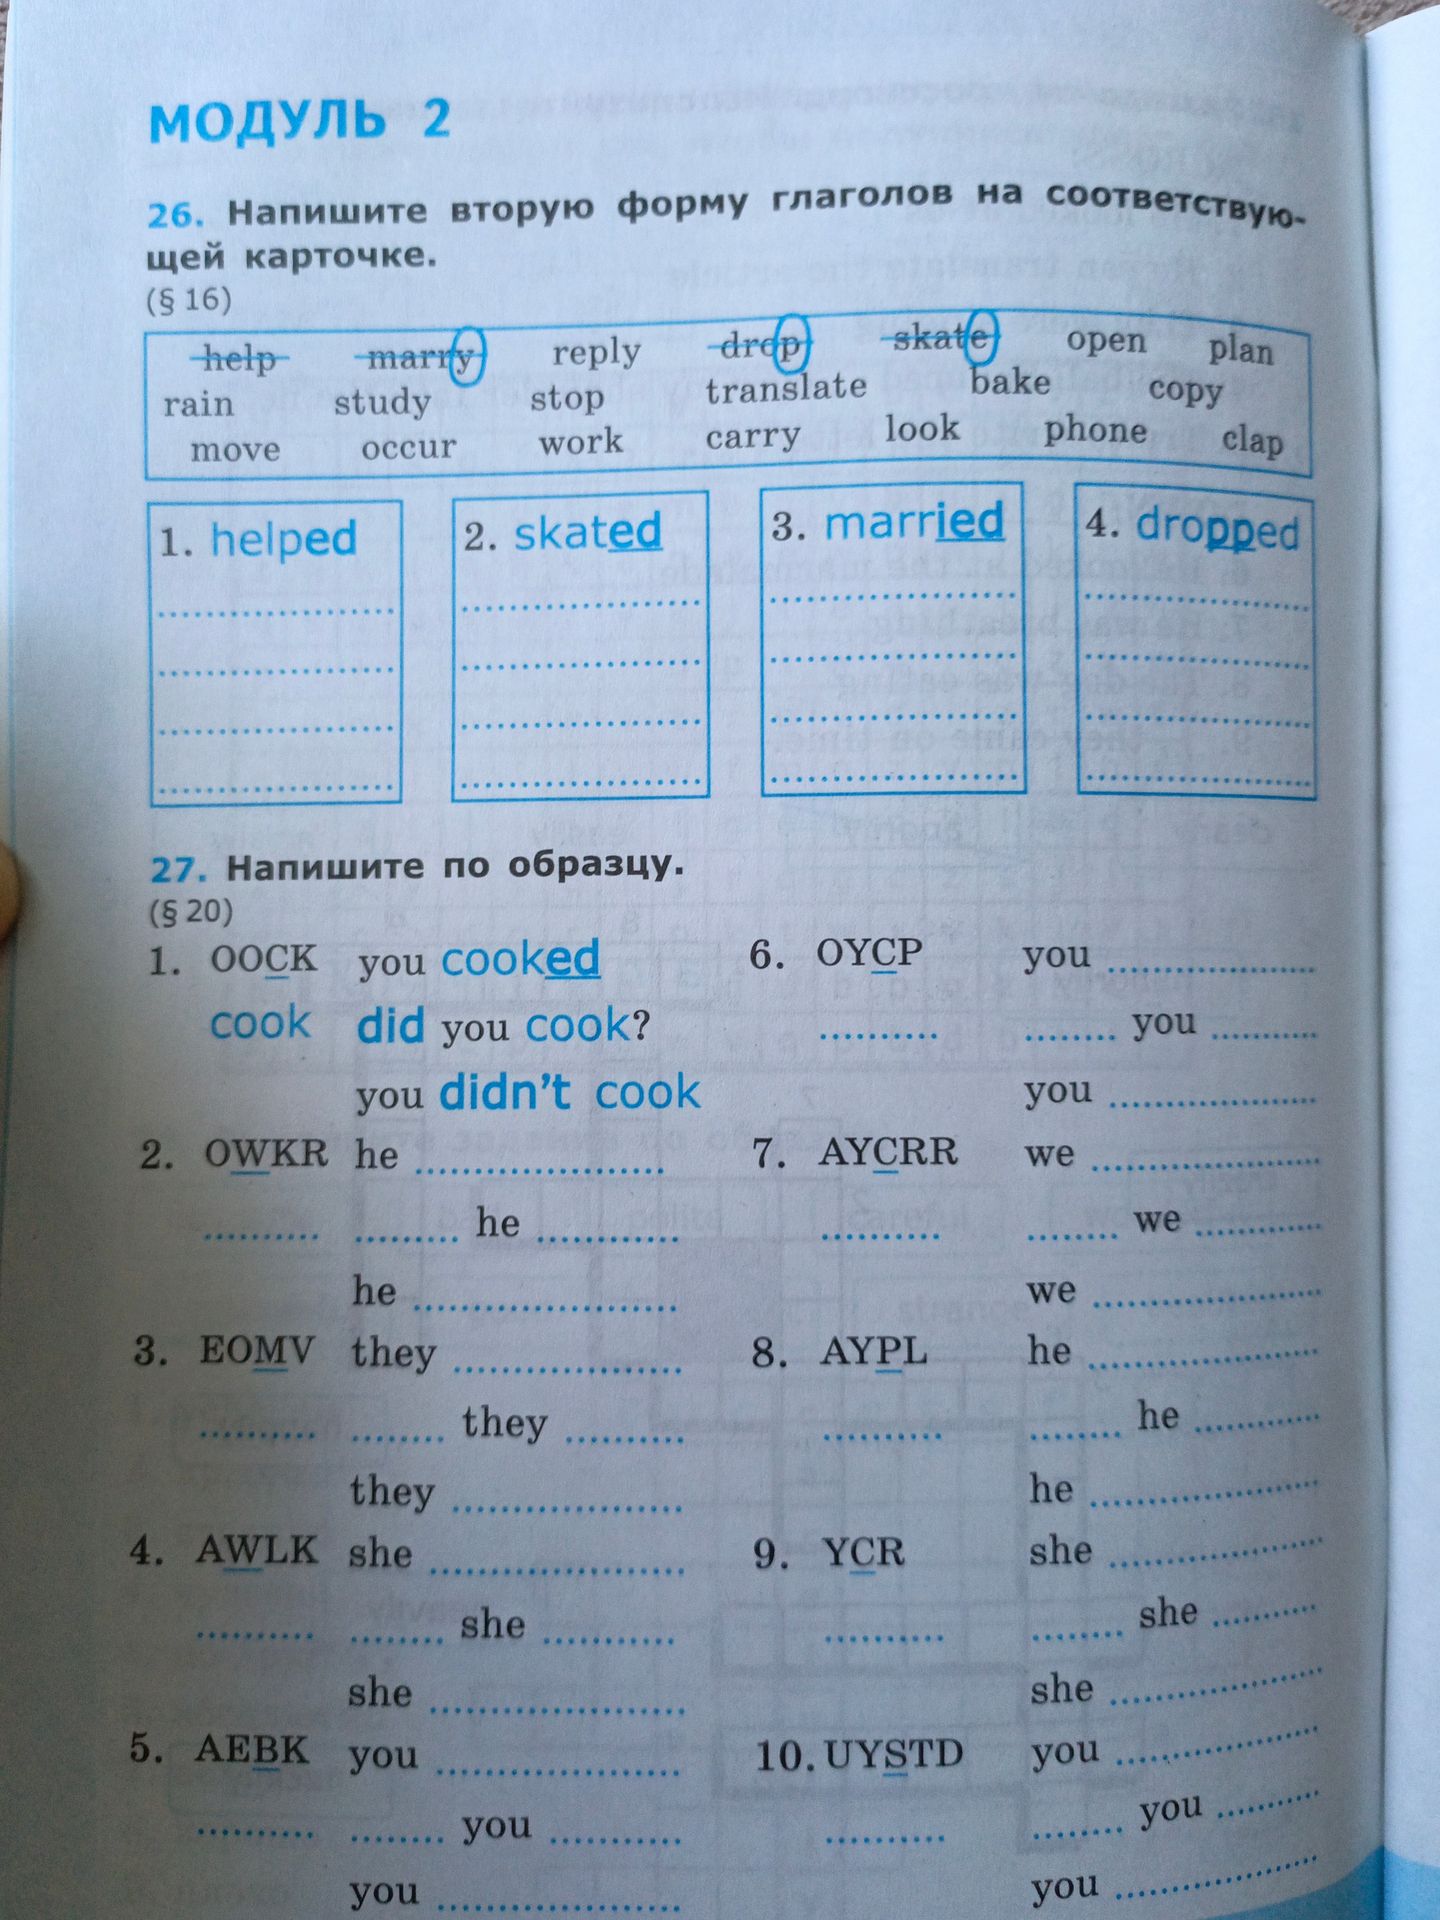 МОДУЛЬ 2
26. Напишите вторую форму глаголов на соответствую-
щей карточке.
(§ 16)
help marry reply drop skate open plan
rain study stop translate bake copy
move occur work carry look phone clap
1. helped 2. skated 3. married 4. dropped
27. Напишите по образцу.
(§ 20)
1. OOCK you cooked 6. OYCP you
cook did you cook? you
you didn't cook you
2. OWKR he 7. AYCRR we
he we
he we
3. EOMV they 8. AYPL he
they he
they he
4. AWLK she 9. YCR she
she she
she she
5. AEBK you 10. UYSTD you
you you
you you